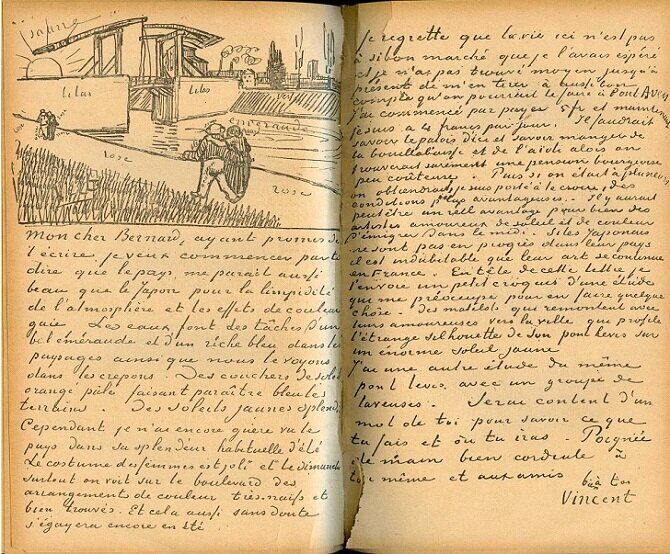 Jaune
Lilas
Lilas
vert
emeraude
rose
rose
Mon cher Bernard, ayant promis de
t'écrire, je veux commencer par te
dire que le pays me parait aussi
beau que le Japon pour la limpidité
de l'atmosphère et les effets de couleur
gaie. Les eaux font des tâches d'un
bel émeraude et d'un riche bleu dans les
paysages ainsi que nous le voyons
dans les crepons. Des couchers de soleil
orangé pâle faisant paraître bleu les
terrains. Des soleils jaunes splendides.
Cependant je n'ai encore guère vu le
pays dans sa splendeur habituelle d'été
Le costume des femmes est joli et le dimanche
surtout on voit sur le boulevard des
arrangements de couleur très naïfs et
bien trouvés. Et cela aussi sans doute
s'égayera encore en été.
Je regrette que la vie ici n'est pas
à si bon marché que je l'avais espéré
et je n'ai pas trouvé moyen jusqu'à
présent de m'en tirer à aussi bon
compte qu'on pourrait le faire à Pont Aven
J'ai commencé par payer 5 fr et maintenant
je suis à 4 francs par jour. Il faudrait
savoir le patois d'ici et savoir manger de
la bouillabaisse et de l'aïoli alors on
trouverait surement une pension bourgeoise
peu coûteuse. Puis si on était à plusieurs
on obtiendrait, je suis porté à le croire, des
conditions plus avantageuses. Il y aurait
peut être un réel avantage pour bien des
artistes amoureux de soleil et de couleur
d'émigrer dans le midi. Si les Japonais
ne sont pas en progrès dans leur pays
il est indubitable que leur art se continue
en France. En tête de cette lettre je
t'envoie un petit croquis d'une étude
qui me préoccupe pour en faire quelque
chose - Des matelots qui remontent avec
leurs amoureuses vers la ville qui profile
l'étrange silhouette de son pont levis sur
un énorme soleil jaune
J'ai une autre étude du même
pont levis avec un groupe de
laveuses. Serai content d'un
mot de toi pour savoir ce que
tu fais et où tu iras - Poignée
de main bien cordiale à
toi même et aux amis
b. à toi
Vincent